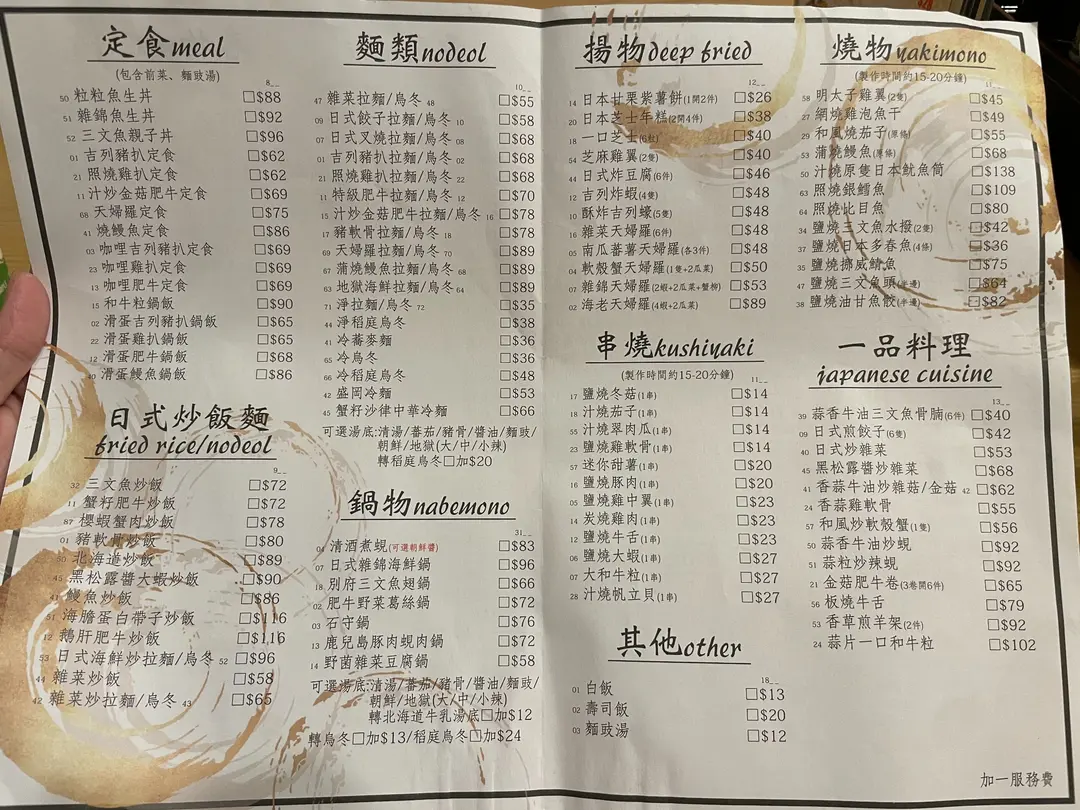 定食meal
(包含前菜、麵豉湯)
8__
50 粒粒魚生丼 □$88
51 雜錦魚生丼 □$92
52 三文魚親子丼 □$96
01 吉列豬扒定食 □$62
21 照燒雞扒定食 □$62
11 汁炒金菇肥牛定食 □$69
68 天婦羅定食 □$75
41 燒鰻魚定食 □$86
03 咖哩吉列豬扒定食 □$69
23 咖哩雞扒定食 □$69
13 咖哩肥牛定食 □$69
15 和牛粒鍋飯 □$90
02 滑蛋吉列豬扒鍋飯 □$65
22 滑蛋雞扒鍋飯 □$65
12 滑蛋肥牛鍋飯 □$68
40 滑蛋鰻魚鍋飯 □$86
日式炒飯麵
fried rice/nodeol
9__
32 三文魚炒飯 □$72
11 蟹籽肥牛炒飯 □$72
87 櫻蝦蟹肉炒飯 □$78
01 豬軟骨炒飯 □$80
30 北海道炒飯 □$89
45 黑松露醬大蝦炒飯 □$90
41 鰻魚炒飯 □$86
51 海膽蛋白帶子炒飯 □$116
12 鵝肝肥牛炒飯 □$116
53 日式海鮮炒拉麵/烏冬 52 □$96
44 雜菜炒飯 □$58
42 雜菜炒拉麵/烏冬 43 □$65
麵類nodeol
10__
47 雜菜拉麵/烏冬 48 □$55
09 日式餃子拉麵/烏冬 10 □$58
07 日式叉燒拉麵/烏冬 08 □$68
01 吉列豬扒拉麵/烏冬 02 □$68
21 照燒雞扒拉麵/烏冬 22 □$68
11 特級肥牛拉麵/烏冬 12 □$70
15 汁炒金菇肥牛拉麵/烏冬 16 □$78
17 豬軟骨拉麵/烏冬 18 □$78
69 天婦羅拉麵/烏冬 70 □$89
67 蒲燒鰻魚拉麵/烏冬 68 □$89
63 地獄海鮮拉麵/烏冬 64 □$89
71 淨拉麵/烏冬 72 □$35
44 淨稻庭烏冬 □$38
41 冷蕎麥麵 □$36
65 冷烏冬 □$36
66 冷稻庭烏冬 □$48
42 盛岡冷麵 □$53
45 蟹籽沙律中華冷麵 □$66
可選湯底:清湯/蕃茄/豬骨/醬油/麵豉/
朝鮮/地獄(大/中/小辣)
轉稻庭烏冬□加$20
鍋物nabemono
31__
04 清酒煮蜆(可選朝鮮醬) □$83
07 日式雜錦海鮮鍋 □$96
18 別府三文魚翅鍋 □$66
02 肥牛野菜葛絲鍋 □$72
03 石守鍋 □$76
13 鹿兒島豚肉蜆肉鍋 □$72
14 野菌雜菜豆腐鍋 □$58
可選湯底:清湯/蕃茄/豬骨/醬油/麵豉/
朝鮮/地獄(大/中/小辣)
轉北海道牛乳湯底□加$12
轉烏冬□加$13/稻庭烏冬□加$24
揚物deep fried
12__
14 日本甘栗紫薯餅(1開2件) □$26
20 日本芝士年糕(2開4件) □$38
06 一口芝士(6粒) □$40
54 芝麻雞翼(2隻) □$40
44 日式炸豆腐(6件) □$46
12 吉列炸蝦(4隻) □$48
10 酥炸吉列蠔(5隻) □$48
16 雜菜天婦羅(6件) □$48
05 南瓜蕃薯天婦羅(各3件) □$48
04 軟殼蟹天婦羅(1隻+2瓜菜) □$50
07 雜錦天婦羅(2蝦+2瓜菜+蟹柳) □$53
02 海老天婦羅(4蝦+2瓜菜) □$89
串燒kushiyaki
(製作時間約15-20分鐘)
11__
17 鹽燒冬菇(1串) □$14
18 汁燒茄子(1串) □$14
55 汁燒翠肉瓜(1串) □$14
23 鹽燒雞軟骨(1串) □$14
57 迷你甜薯(1串) □$20
16 鹽燒豚肉(1串) □$20
05 鹽燒雞中翼(1串) □$23
14 炭燒雞肉(1串) □$23
12 鹽燒牛舌(1串) □$23
06 鹽燒大蝦(1串) □$27
07 大和牛粒(1串) □$27
28 汁燒帆立貝(1串) □$27
其他other
18__
01 白飯 □$13
02 壽司飯 □$20
03 麵豉湯 □$12
燒物yakimono
(製作時間約15-20分鐘)
11__
58 明太子雞翼(2隻) □$45
27 網燒雞泡魚干 □$49
29 和風燒茄子(原條) □$55
53 蒲燒鰻魚(原條) □$68
50 汁燒原隻日本魷魚筒 □$138
63 照燒銀鱈魚 □$109
64 照燒比目魚 □$80
34 鹽燒三文魚水撥(2隻) □$42
37 鹽燒日本多春魚(4條) □$36
35 鹽燒挪威鯖魚 □$75
47 鹽燒三文魚頭(半邊) □$64
38 鹽燒油甘魚鮫(半邊) □$82
一品料理
japanese cuisine
13__
39 蒜香牛油三文魚骨腩(6件) □$40
09 日式煎餃子(6隻) □$42
40 日式炒雜菜 □$53
45 黑松露醬炒雜菜 □$68
41 香蒜牛油炒雜菇/金菇 42 □$62
24 香蒜雞軟骨 □$55
57 和風炒軟殼蟹(1隻) □$56
50 蒜香牛油炒蜆 □$92
51 蒜粒炒辣蜆 □$92
21 金菇肥牛卷(3卷開6件) □$65
56 板燒牛舌 □$79
53 香草煎羊架(2件) □$92
24 蒜片一口和牛粒 □$102
加一服務費